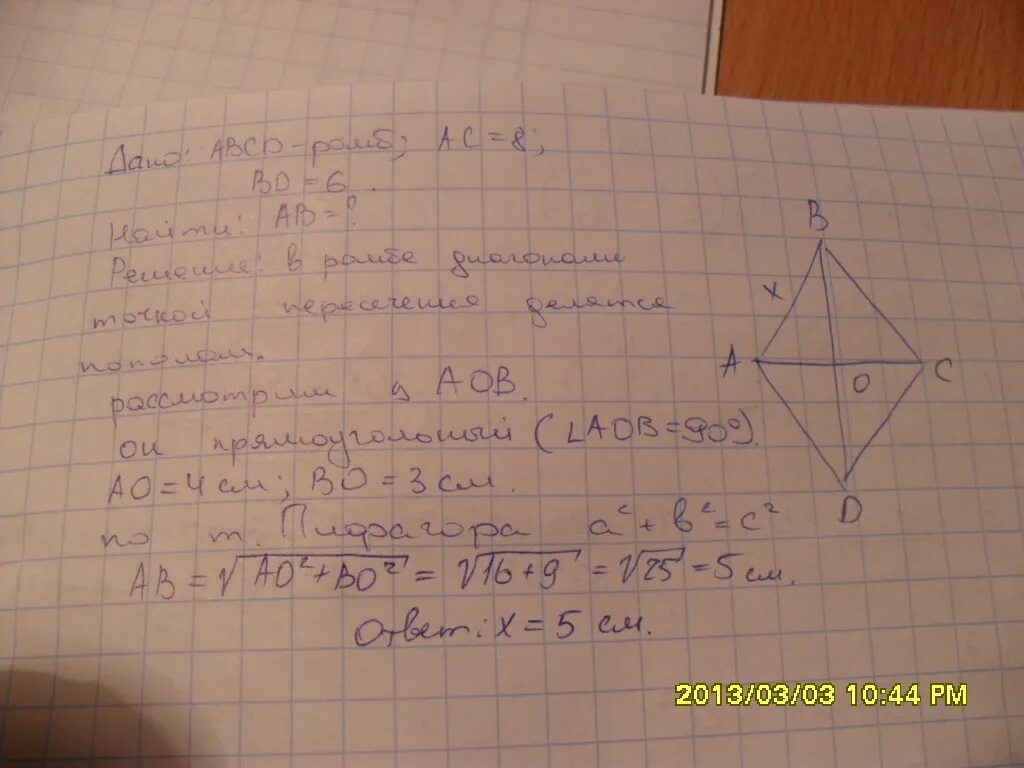 Дано: ABCD-ромб; AC=8;
BD=6.
Найти: AB=?
Решение: в ромбе диагонали
точкой пересечения делятся
пополам.
рассмотрим AOB.
он прямоугольный (∠AOB=90°).
AO=4см; BO=3см.
по т. Пифагора a²+b²=c²
AB=√AO²+BO²=√16+9=√25=5см.
Ответ: x=5 см.
B
x
A
O
C
D
2013/03/03 10:44 PM